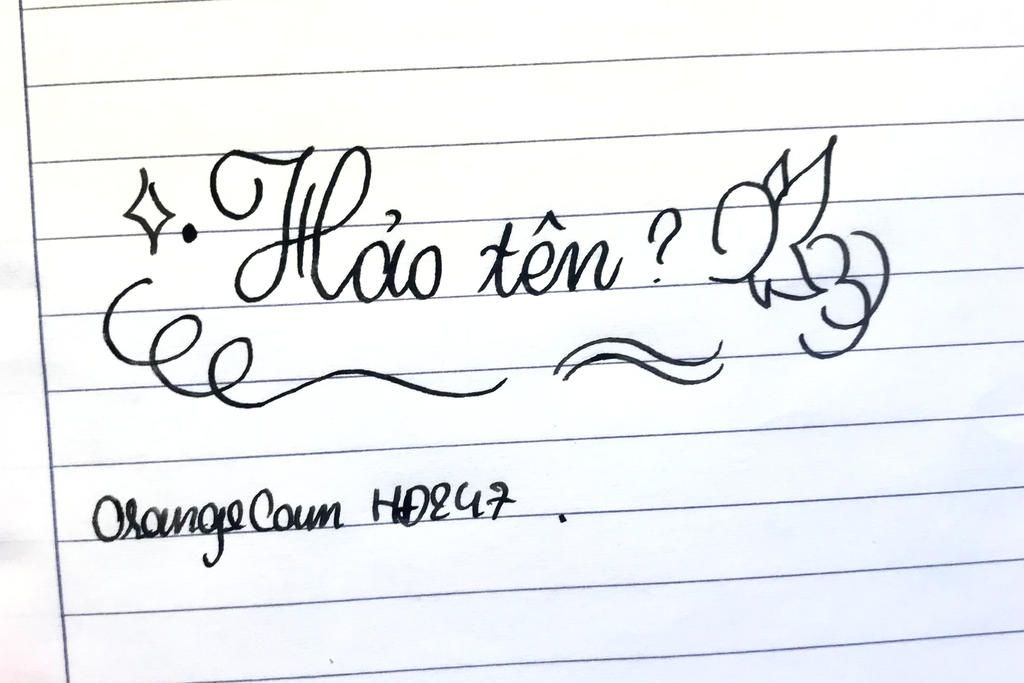 Hảo tên?
OrangeCam HĐ247.